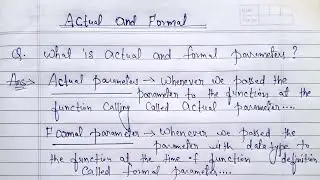 Actual and Formal
Q. What is actual and formal paremeters?
Ans:→ Actual parameter → Whenever we passed the
parameter to the function at the
function calling called Actual parameter....
Formal parameter → Whenever we passed the
parameter with datatype to
the function at the time of function definition
called formal parameter....